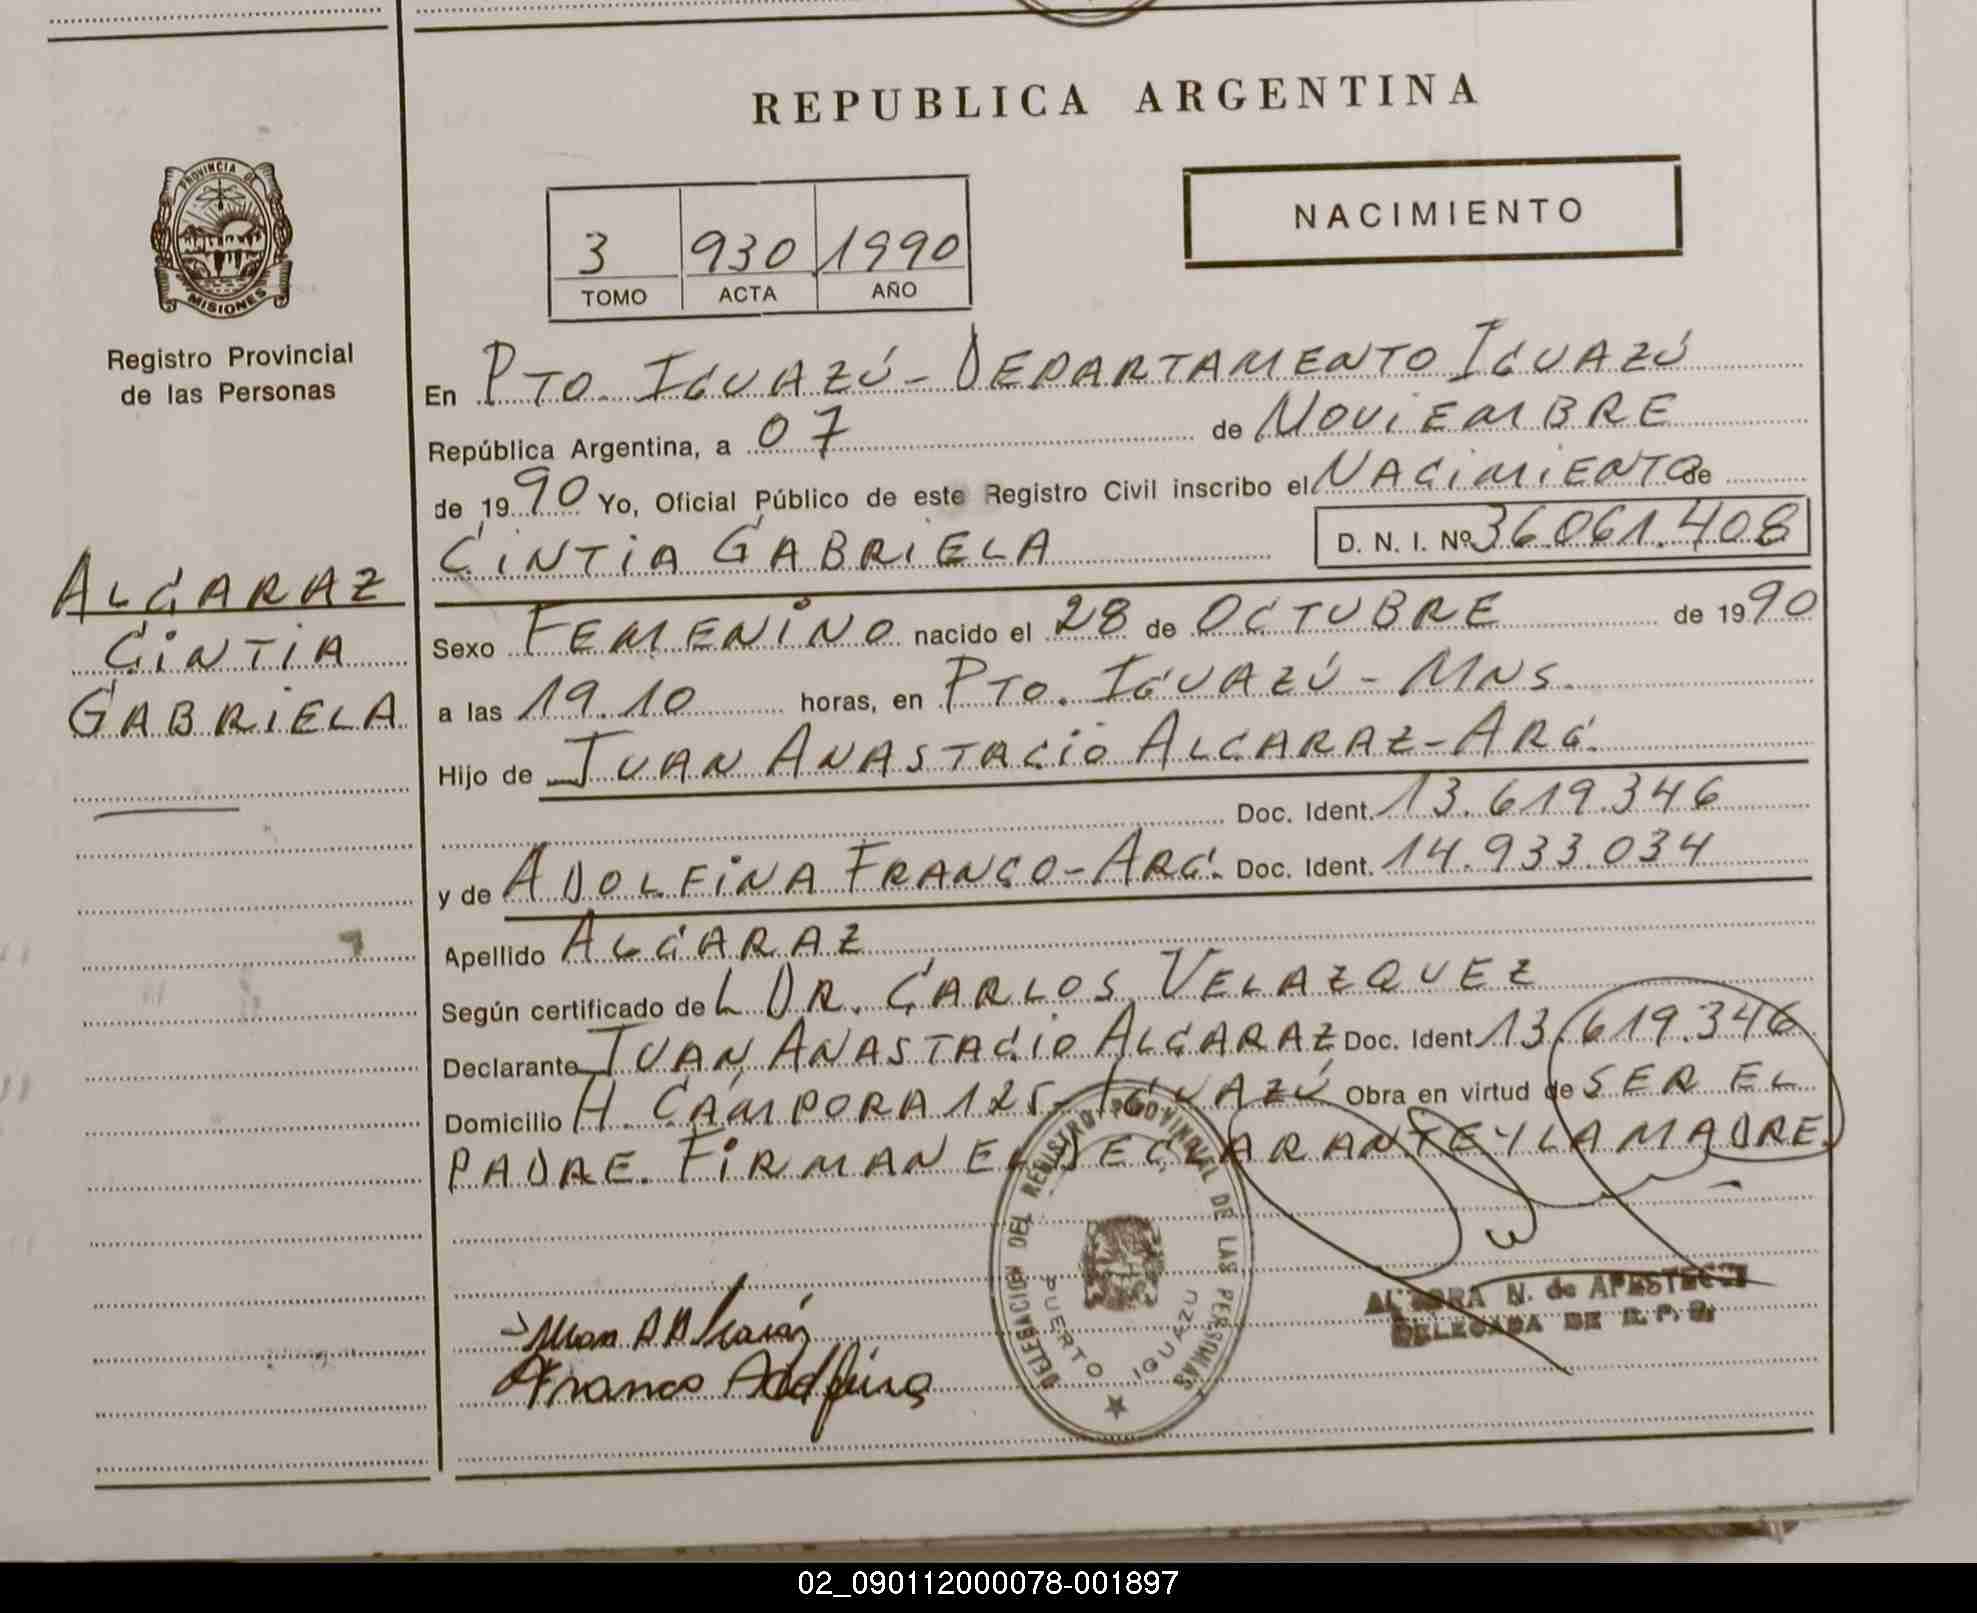 REPUBLICA ARGENTINA
PROVINCIA DE
MISIONES
Registro Provincial
de las Personas
ALCARAZ
CINTIA
GABRIELA
NACIMIENTO
3 930 1990
TOMO ACTA AÑO
En PTO. IGUAZÚ - DEPARTAMENTO IGUAZÚ
República Argentina, a 07 de NOVIEMBRE
de 1990 Yo, Oficial Público de este Registro Civil inscribo el NACIMIENTO de
CINTIA GABRIELA D. N. I. Nº 36.061.408
Sexo FEMENINO nacido el 28 de OCTUBRE de 1990
a las 19.10 horas, en PTO. IGUAZÚ - MNS.
Hijo de JUAN ANASTACIO ALCARAZ - ARG.
Doc. Ident. 13.619.346
y de ADOLFINA FRANCO - ARG. Doc. Ident. 14.933.034
Apellido ALCARAZ
Según certificado de L DR. CARLOS VELAZQUEZ
Declarante JUAN ANASTACIO ALCARAZ Doc. Ident 13.619.346
Domicilio H. CÁMPORA 125 - IGUAZÚ Obra en virtud de SER EL
PADRE. FIRMAN EL DECLARANTE Y LA MADRE.
DELEGACION DEL REGISTRO PROVINCIAL DE LAS PERSONAS
PUERTO IGUAZU
Juan A Alcaráz
Franco Adolfina
N. de
DELEGADA DE R. P. P.
02_090112000078-001897